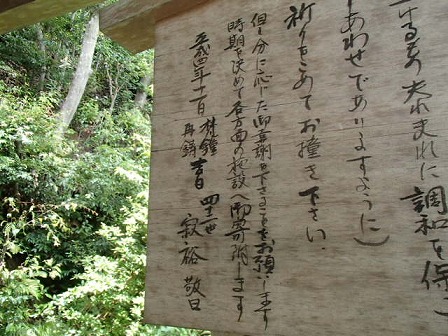 するもの夫れまれに調和を保
しあわせでありますように）
祈りをこめてお撞き下さい。
但し分に応じた御喜謝を下さることをお願いします
時期を決めて各方面の施設へ御寄附します
十一月 梵鐘 再鋳 吉日 四十二世 寂裕 敬白